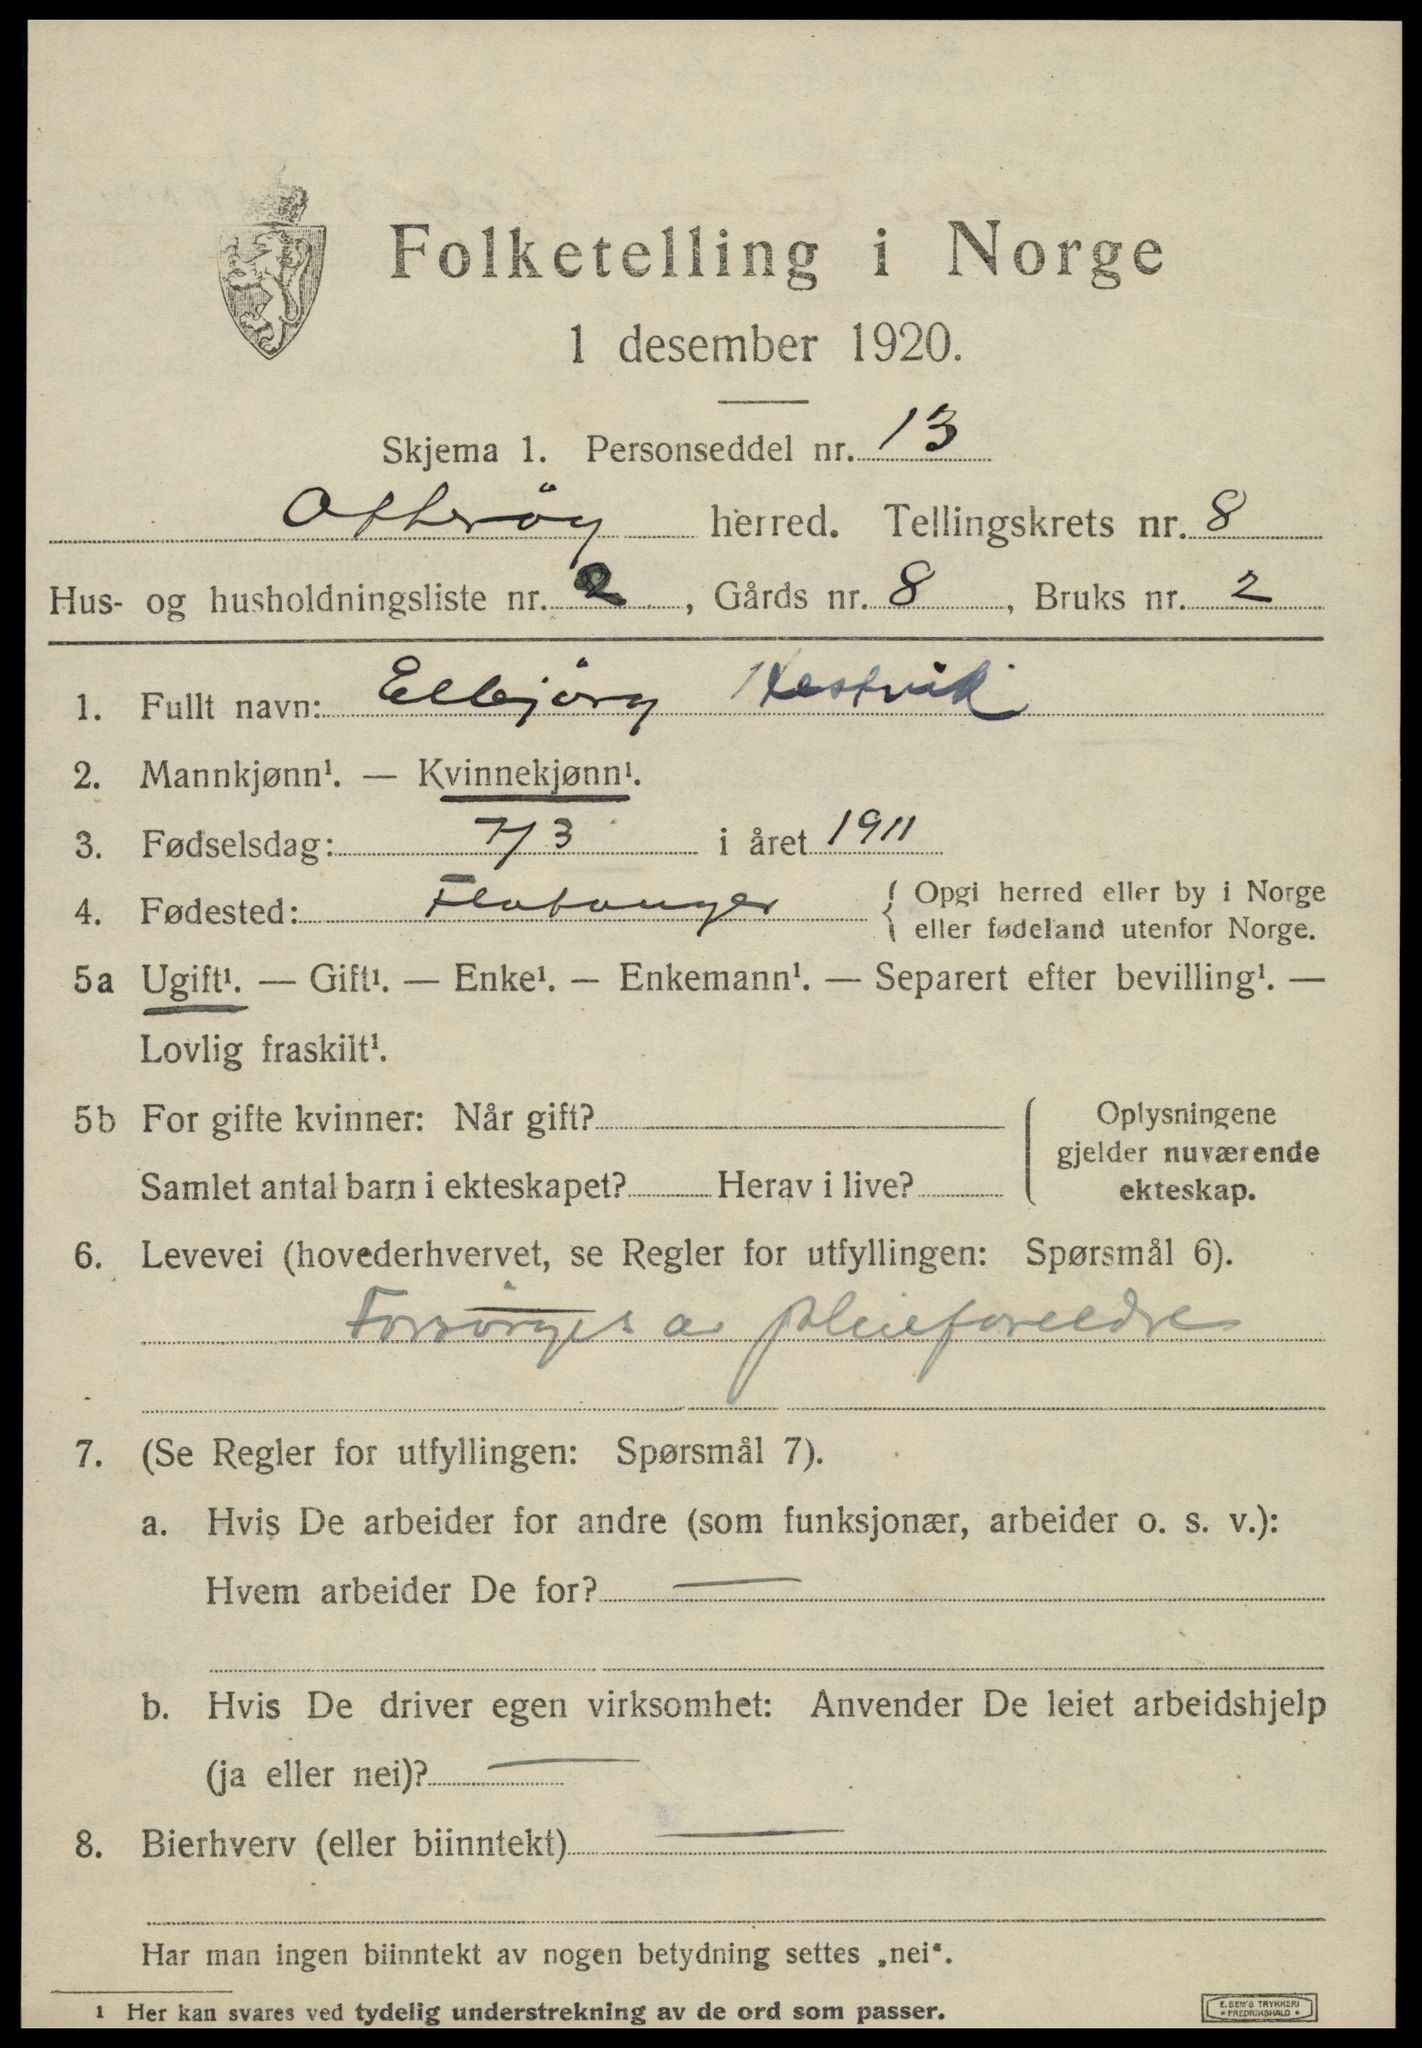 Folketelling i Norge
1 desember 1920.
Skjema 1. Personseddel nr. 13
Otterøy herred. Tellingskrets nr. 8
Hus- og husholdningsliste nr. 2, Gårds nr. 8, Bruks nr. 2
1. Fullt navn: Elbjörg Hestvik
2. Mannkjønn¹. — Kvinnekjønn¹.
3. Fødselsdag: 7/3 i året 1911
4. Fødested: Flatanger { Opgi herred eller by i Norge
eller fødeland utenfor Norge.
5a Ugift¹. — Gift¹. — Enke¹. — Enkemann¹. — Separert efter bevilling¹. —
Lovlig fraskilt¹.
5b For gifte kvinner: Når gift?
Samlet antal barn i ekteskapet? Herav i live?
Oplysningene
gjelder nuværende
ekteskap.
6. Levevei (hovederhvervet, se Regler for utfyllingen: Spørsmål 6).
Forsörges a pleieforeldre
7. (Se Regler for utfyllingen: Spørsmål 7).
a. Hvis De arbeider for andre (som funksjonær, arbeider o. s. v.):
Hvem arbeider De for? —
b. Hvis De driver egen virksomhet: Anvender De leiet arbeidshjelp
(ja eller nei)? —
8. Bierhverv (eller biinntekt) —
Har man ingen biinntekt av nogen betydning settes „nei“.
1 Her kan svares ved tydelig understrekning av de ord som passer.
E. SEM'S TRYKKERI
• FREDRIKSHALD •